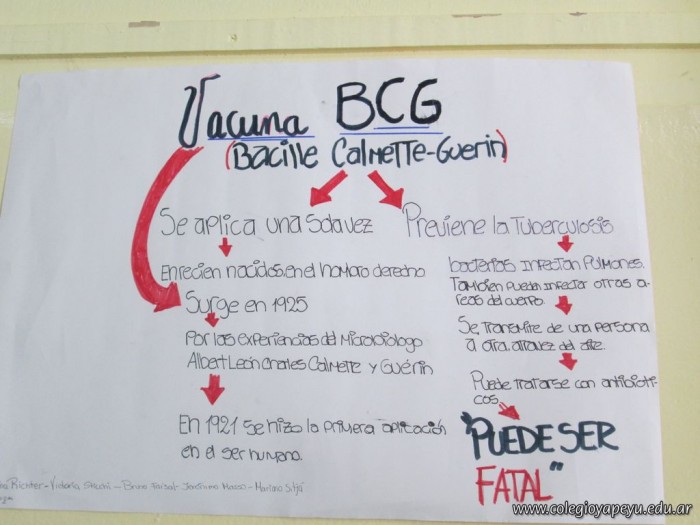 Vacuna BCG
(Bacille Calmette-Guerin)
Se aplica una sola vez
En recien nacidos, en el homoro derecho
Surge en 1925
Por las experiencias del Microbiólogo
Albert León Charles Calmette y Guérin
En 1921 se hizo la primera aplicación
en el ser humano.
Previene la Tuberculosis
bacterias infectan Pulmones.
También pueden infectar otras a-
reas del cuerpo.
Se transmite de una persona
a otra atravez del aire.
Puede tratarse con antibioti-
cos.
"PUEDE SER
FATAL"
Richter - Victoria - Bruno - Jerónimo - Mariano
www.colegioyapeyu.edu.ar